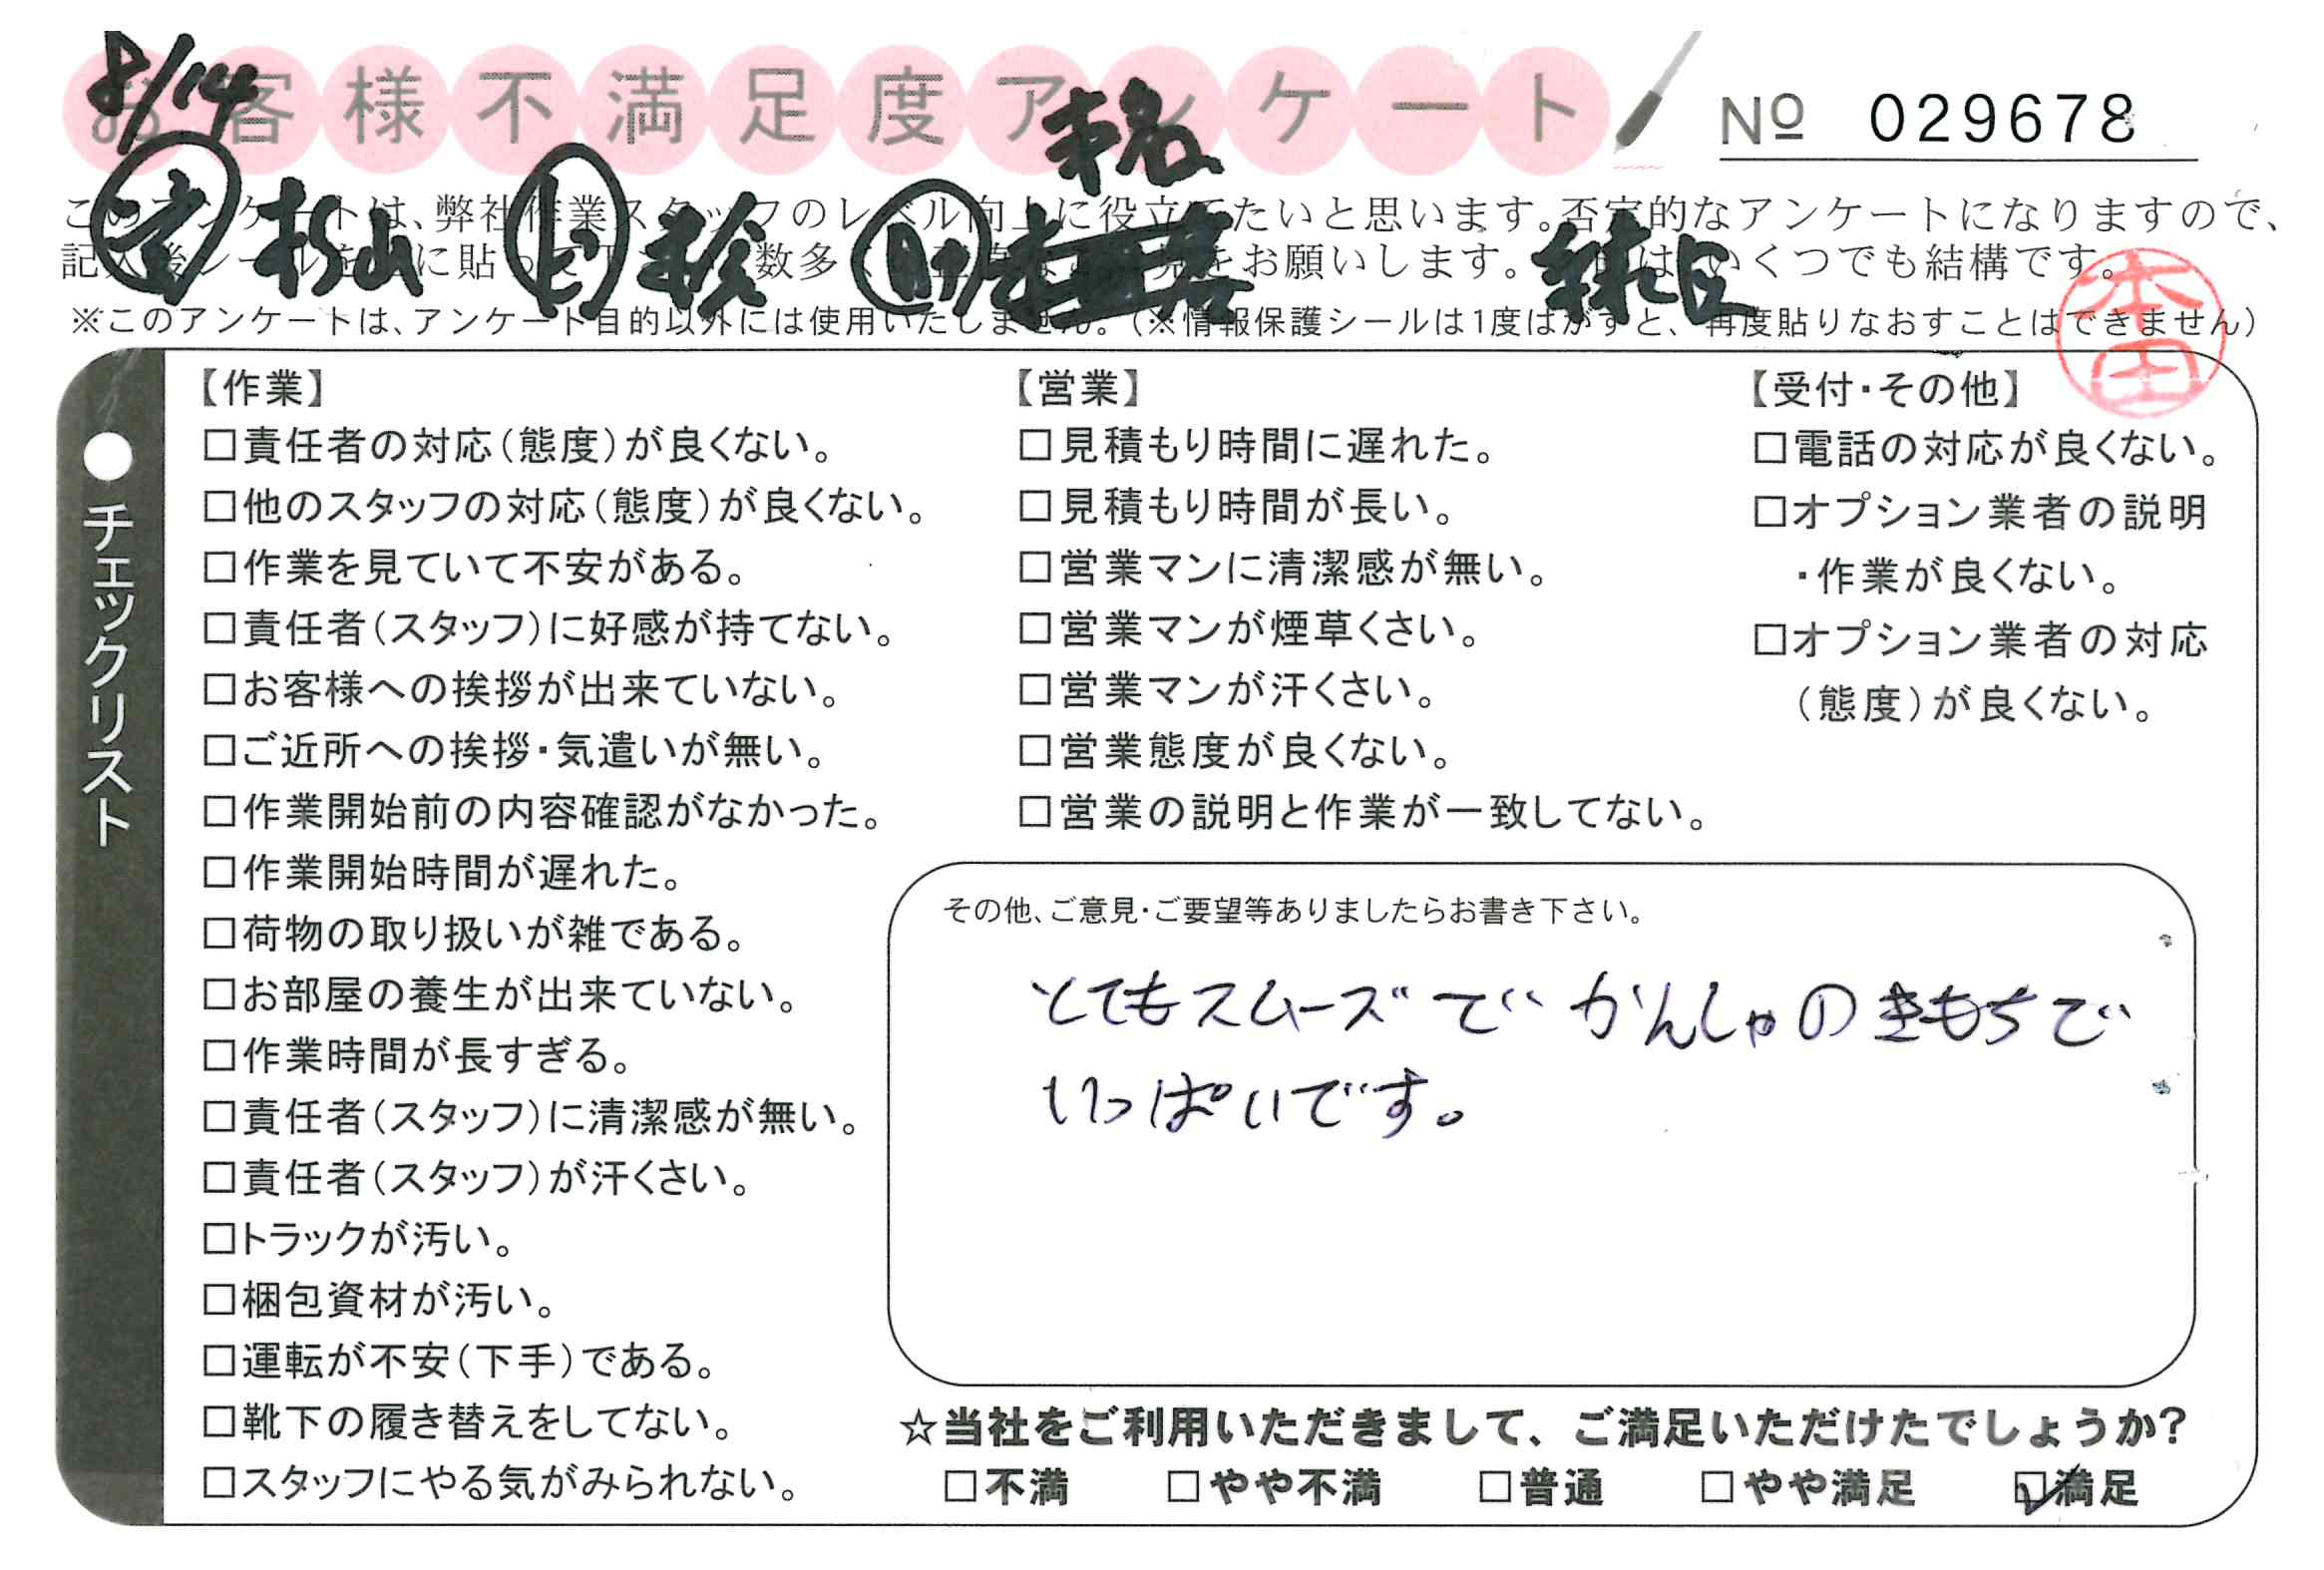 8/14
お客様不満足度アンケート
№ 029678
このアンケートは、弊社作業スタッフのレベル向上に役立てたいと思います。否定的なアンケートになりますので、
記入後シールを に貼って 数多 をお願いします。 はいくつでも結構です。
※このアンケートは、アンケート目的以外には使用いたしません。(※情報保護シールは1度はがすと、再度貼りなおすことはできません)
杉山 ㊙助
本田
●チェックリスト
【作業】
□責任者の対応(態度)が良くない。
□他のスタッフの対応(態度)が良くない。
□作業を見ていて不安がある。
□責任者(スタッフ)に好感が持てない。
□お客様への挨拶が出来ていない。
□ご近所への挨拶・気遣いが無い。
□作業開始前の内容確認がなかった。
□作業開始時間が遅れた。
□荷物の取り扱いが雑である。
□お部屋の養生が出来ていない。
□作業時間が長すぎる。
□責任者(スタッフ)に清潔感が無い。
□責任者(スタッフ)が汗くさい。
□トラックが汚い。
□梱包資材が汚い。
□運転が不安(下手)である。
□靴下の履き替えをしてない。
□スタッフにやる気がみられない。
【営業】
□見積もり時間に遅れた。
□見積もり時間が長い。
□営業マンに清潔感が無い。
□営業マンが煙草くさい。
□営業マンが汗くさい。
□営業態度が良くない。
□営業の説明と作業が一致してない。
【受付・その他】
□電話の対応が良くない。
□オプション業者の説明
・作業が良くない。
□オプション業者の対応
(態度)が良くない。
その他、ご意見・ご要望等ありましたらお書き下さい。
とてもスムーズで かんしゃのきもちで
いっぱいです。
☆当社をご利用いただきまして、ご満足いただけたでしょうか?
□不満 □やや不満 □普通 □やや満足 ☑満足